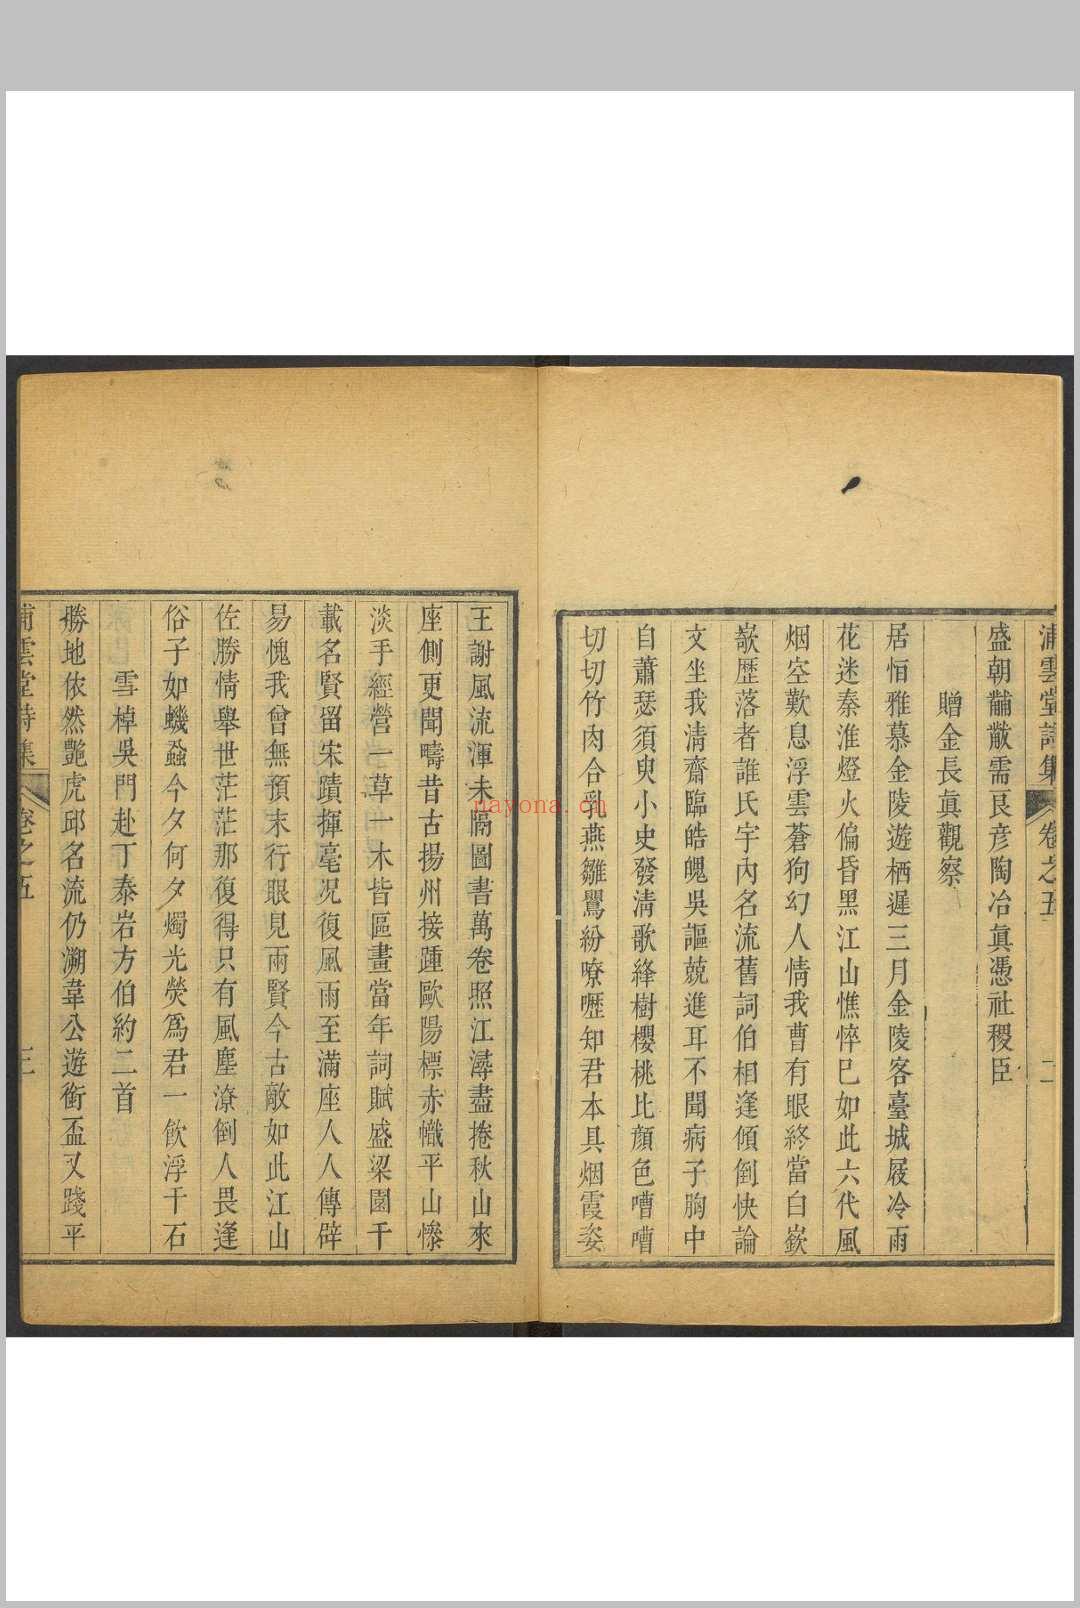 浦雲堂詩集 卷之五 二
盛朝黼黻需良彥陶冶眞憑社稷臣
贈金長眞觀察
居恒雅慕金陵遊栖遲三月金陵客臺城屐冷雨
花迷秦淮燈火偏昏黑江山憔悴已如此六代風
烟空歎息浮雲蒼狗幻人情我曹有眼終當白嶔
嶔歷落者誰氏宇內名流舊詞伯相逢傾倒快論
文坐我清齋臨皓魄吳謳兢進耳不聞病子胸中
自蕭瑟須臾小史發清歌絳樹櫻桃比顏色嘈嘈
切切竹肉合乳燕雛鸎紛嘹嚦知君本具烟霞姿
王謝風流渾未隔圖書萬卷照江潯盡捲秋山來
座側更聞疇昔古揚州接踵歐陽標赤幟平山慘
淡手經營一草一木皆區畫當年詞賦盛梁園千
載名賢留宋蹟揮毫况復風雨至滿座人人傳辟
易愧我曾無預末行眼見兩賢今古敵如此江山
佐勝情舉世茫茫那復得只有風塵潦倒人畏逢
俗子如蟣蝨今夕何夕燭光熒爲君一飲浮千石
雪棹吳門赴丁泰岩方伯約二首
勝地依然艷虎邱名流仍溯韋公遊銜盃又踐平
浦雲堂詩集 卷之五 三
nayona.cn